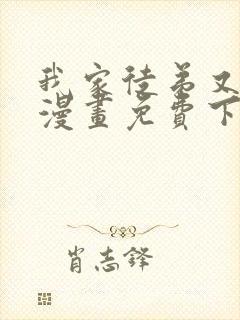 我家徒弟又
漫畫免費下
肖志鋒